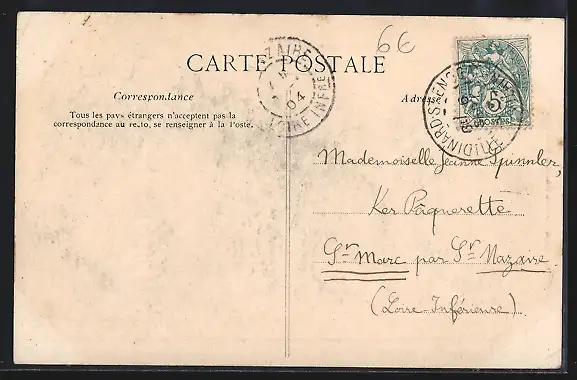 6€
CARTE POSTALE
Correspondance
Tous les pays étrangers n'acceptent pas la
correspondance au recto, se renseigner à la Poste.
Adresse
ZAIRE
04
LOIRE INFRE
5
POSTES
DINARD
Mademoiselle Jeanne Spinnler,
Ker Pâquerette
St Marc par St Nazaire
(Loire-Inférieure)